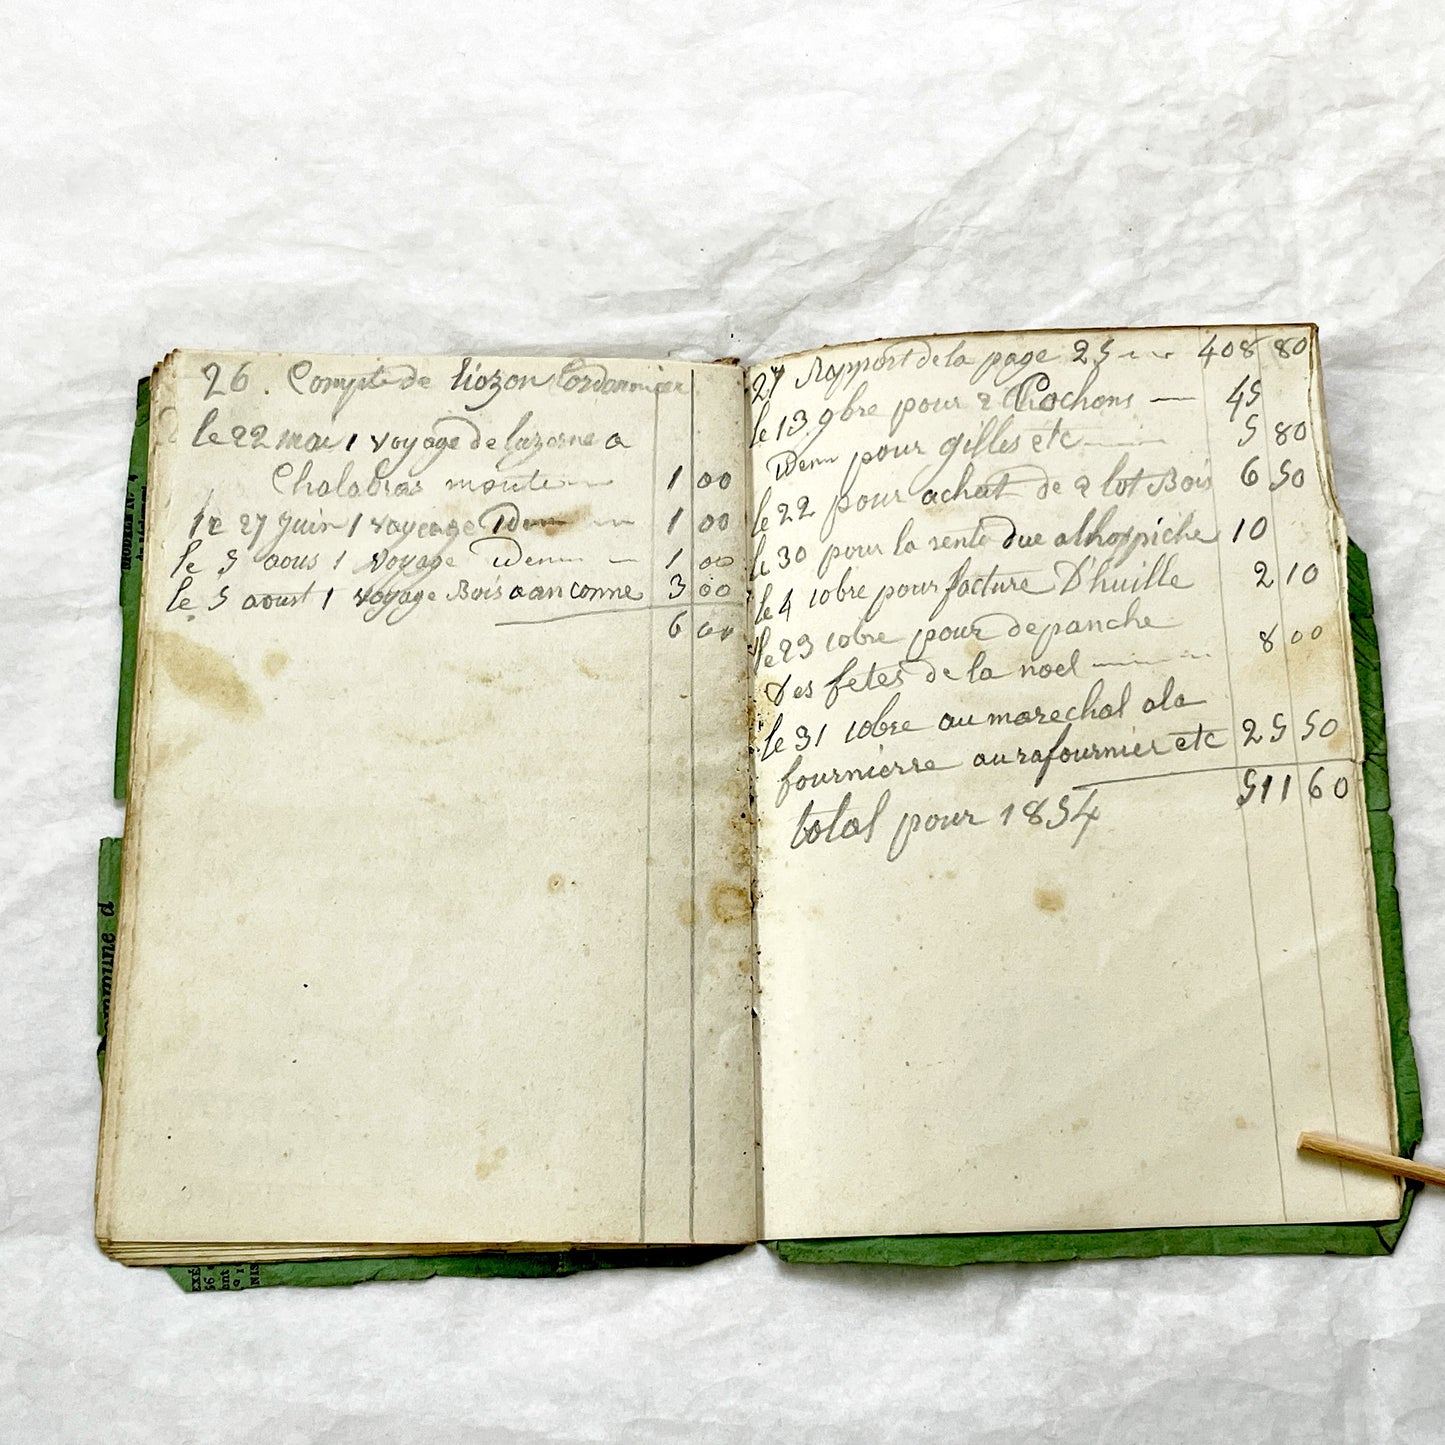 26. Compte de liozon Cordonnier
le 22 mai 1 voyage de luzerne a
Chalabras monte 1 00
le 27 Juin 1 voyage Idem 1 00
le 5 aous 1 Voyage idem 1 00
le 5 aoust 1 voyage Bois a anconne 3 00
6 00
27 Rapport de la page 25 408 80
le 13 9bre pour 2 Cochons 45
idem pour gilles etc 5 80
le 22 pour achat de 2 lot Bois 6 50
le 30 pour la rente due alhospiche 10
le 4 10bre pour facture D'huille 2 10
le 23 10bre pour depanche
des fetes de la noel 8 00
le 31 10bre au marechal ala
fournierre au rafournier etc 25 50
total pour 1854 511 60
ommune d